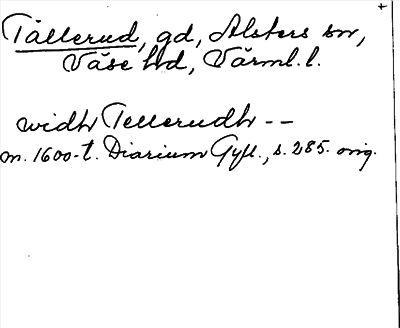 Tällerud, gd, Alsters sn,
Väse hd, Värml. l.
widh Tellerudh --
m. 1600-t. Diarium Gyll., s. 285. orig.